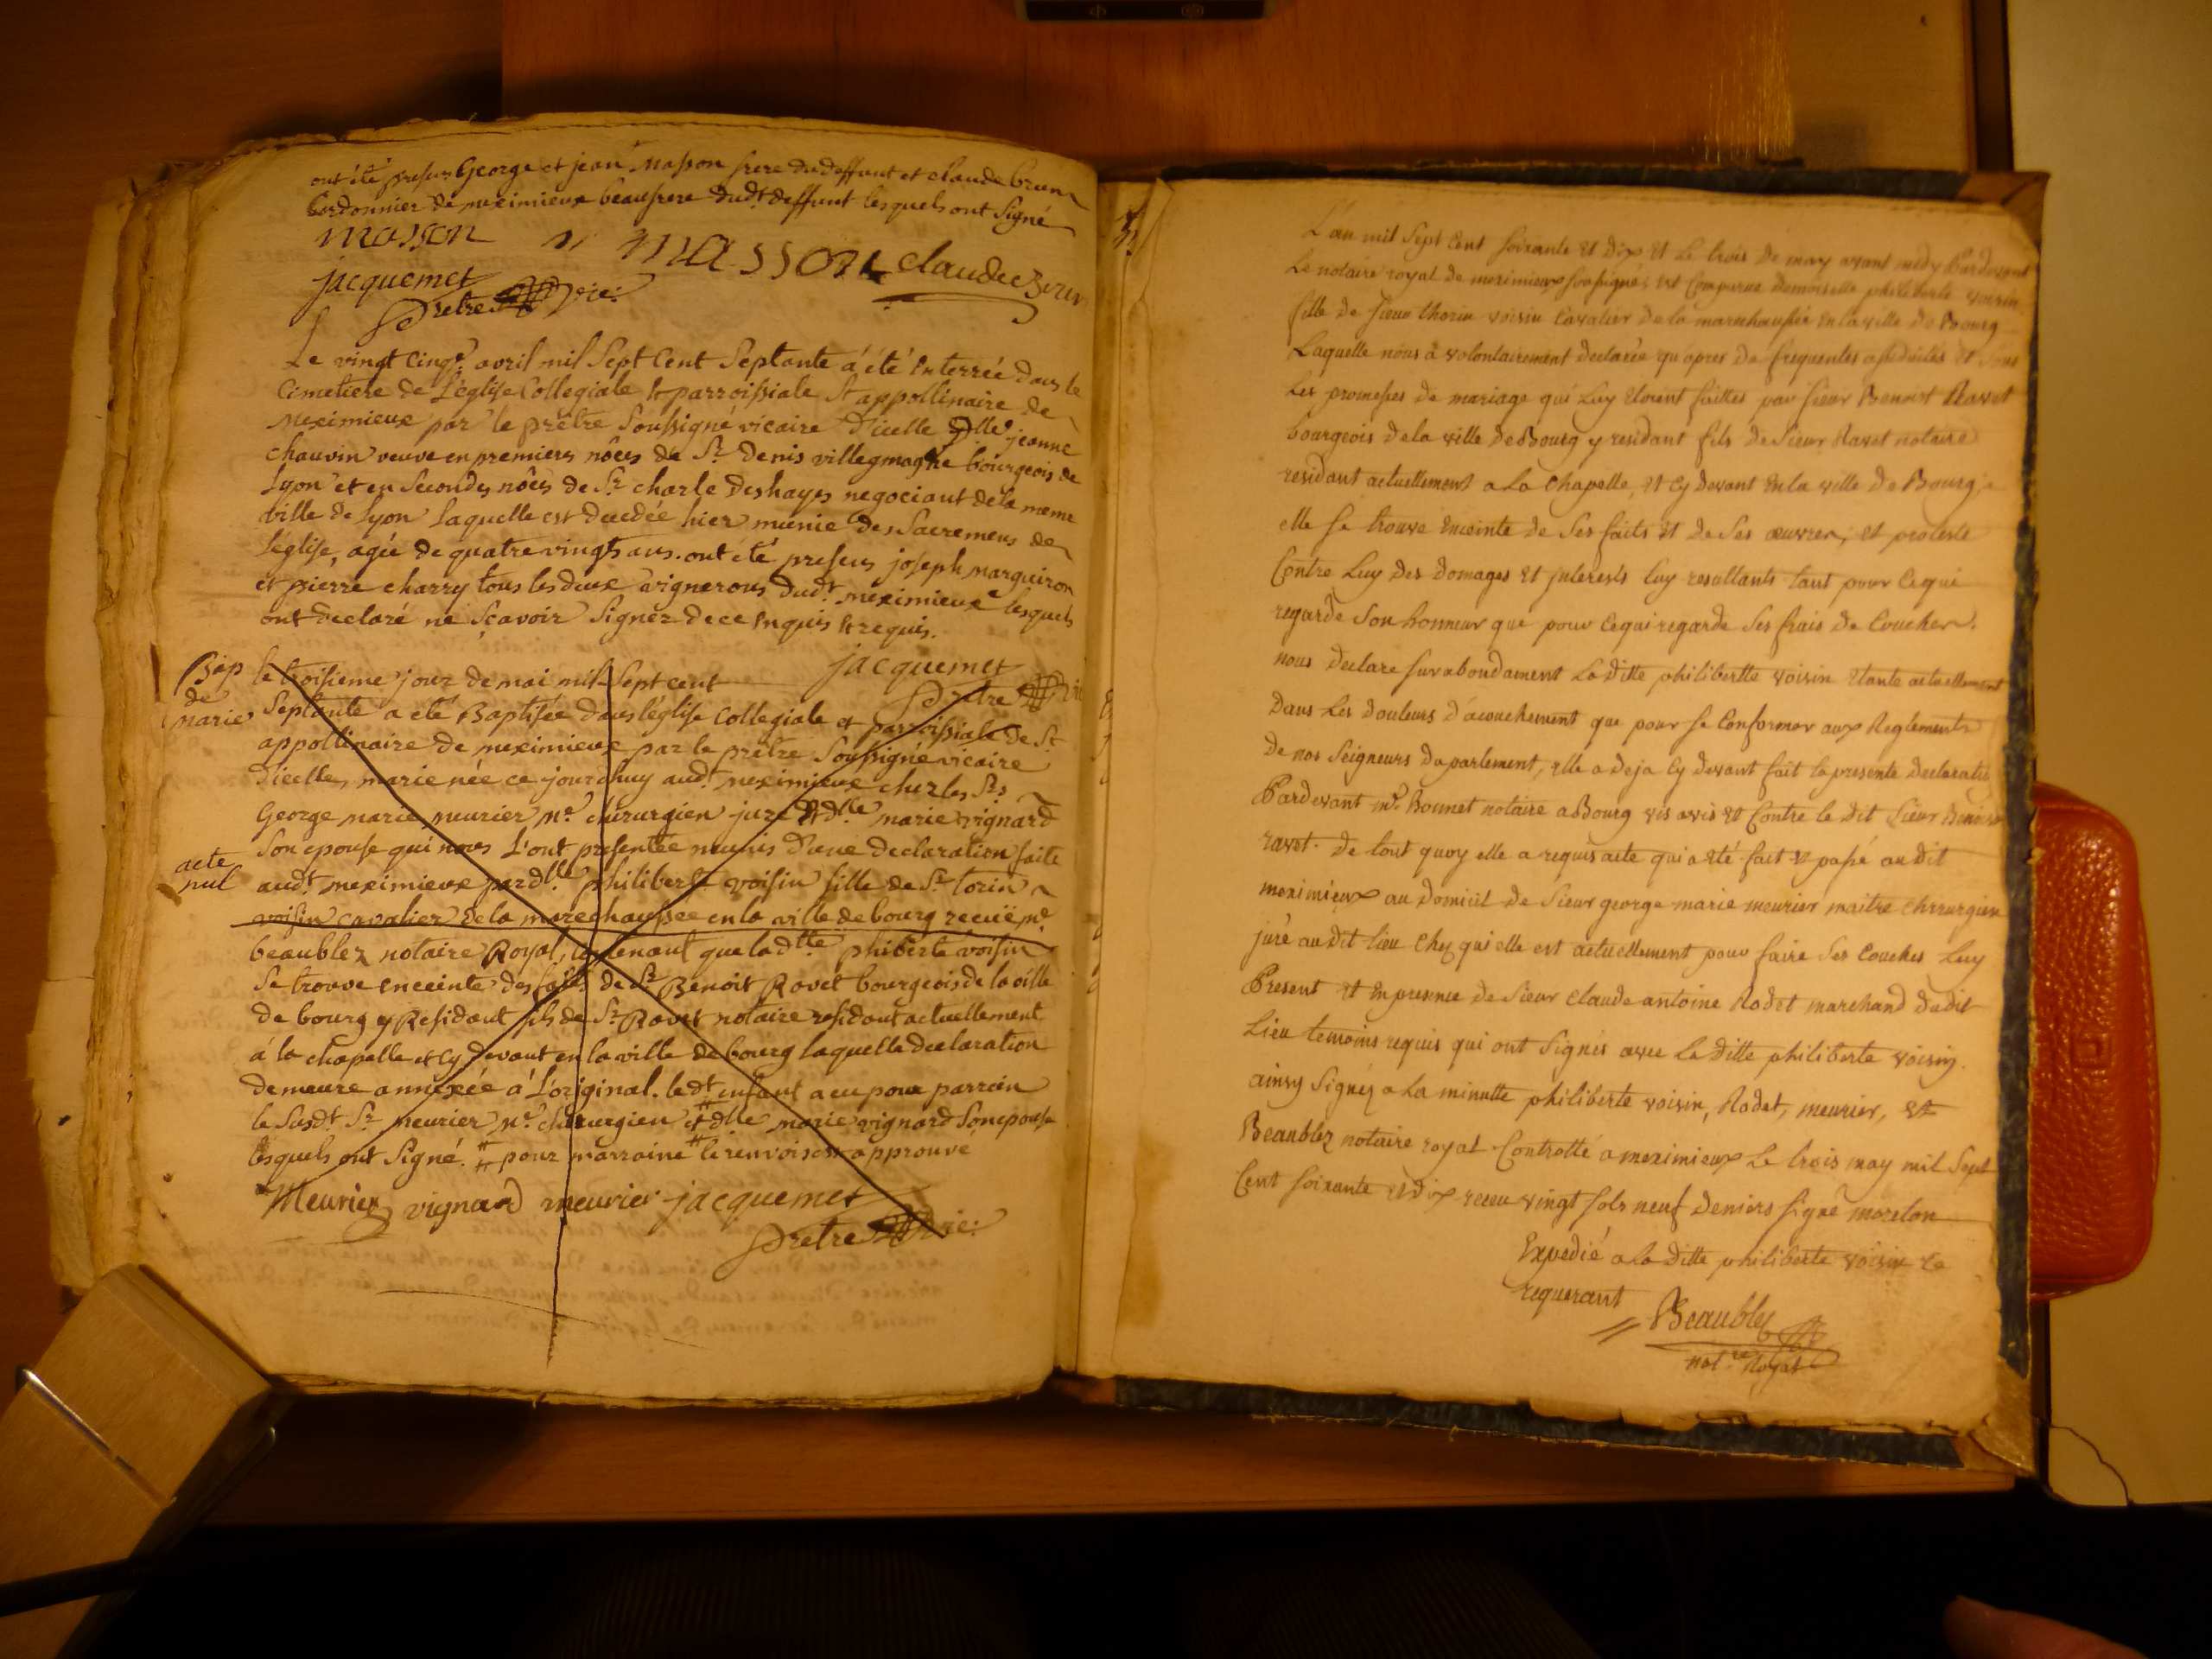 ont été presens George et jean Masson frere dud deffunt et claude brun
Cordonnier de meximieux beaufrere dudt deffunt lesquels ont Signé
masson
masson claude Brun
jacquemet
Pretre vic:
Le vingt cinqe. avril mil Sept Cent Septante á été Enterrée dans le
Cimetiere de L'église Collegiale & parroissiale St appollinaire de
Meximieux par le prêtre Soussigné vicaire d'icelle Dlle jeanne
chauvin veuve en premieres nôces de Sr. Denis villegmagne bourgeois de
Lyon et en Secondes nôces de Sr. charle Deshayes negociant de la meme
ville de Lyon laquelle est decedée hier munie des Sacremens de
l'église, agée de quatre vingts ans. ont été presens joseph Marguiron
et pierre charry tous les deux vignerons dudt. meximieux lesquels
ont declaré ne sçavoir Signer de ce Enquis & requis.
jacquemet
Pretre vic
Bap
de
marie
le troisieme jour de mai mil Sept cent
Septante a été Baptisée dans l'église Collegiale et parroissiale de St
appollinaire de meximieux par le prêtre Soussigné vicaire
d'icelle, marie née ce jourdhuy audt. meximieux chez les Srs
George marie meurier Me. chirurgien juré & dlle marie vignard
Son epouse qui nous L'ont presentée munis d'une declaration faite
acte
nul
audt. meximieux par dlle philiberte voisin fille de Sr torin
voisin cavalier de la marechaussée en la ville de bourg recüe Me.
beaublez notaire Royal, contenant que lad.tte phiberte voisin
Se trouve enceinte des faits de Sr Benoit Ravet bourgeois de la ville
de bourg y Residant fils de Sr. Ravet notaire residant actuellement
á la chapelle et cy devant en la ville de bourg laquelle declaration
demeure annexée á L'original. le dt. enfant a eu pour parrain
le Susdt. Sr. meurier Me. chirurgien & dlle marie vignard Son epouse
lesquels ont Signé. # pour marraine # le renvoi est approuvé
Meurier vignard meurier jacquemet
Pretre vic:
L'an mil Sept Cent Soixante Et Dix Et Le trois De may avant midy Pardevant
Le notaire royal de meximieux soussigné, Est Comparue Demoiselle philiberte voisin
fille De Sieur thorin voisin Cavalier De la marechaussée En la ville De Bourg
Laquelle nous á volontairement declarée qu'apres De frequentes assiduités Et sous
Les promesses de mariage qui Luy Etoient faittes par Sieur Benoist Ravet
bourgeois de la ville de Bourg y residant fils de Sieur Ravet notaire
residant actuellement a La Chapelle, Et Cy Devant En la ville De Bourg,
elle se trouve Enceinte de Ses faits Et De Ses œuvres, et proteste
Contre Luy Des Domages Et jnterests luy resultants tant pour Ce qui
regarde Son honneur que pour Ce qui regarde Ses frais De Coucher.
nous Declare surabondament La Ditte philibertte voisin Etante actuellement
Dans Les Douleurs D'acouchement que pour se Conformer aux Reglements
De nos Seigneurs Du parlement, Elle a Deja Cy devant fait la presente Declaration
Pardevant Me. Bonnet notaire a Bourg vis avis Et Contre le Dit Sieur Benoist
ravet. De tout quoy elle a requis acte qui a Eté fait Et passé au dit
meximieux au Domicil de Sieur george marie meurier maitre Chirurgien
juré au Dit lieu Chez qui elle est actuellement pour faire Ses Couches Luy
Present Et En presence De Sieur Claude antoine Rodet marchand Dudit
Lieu temoins requis qui ont Signés avec La Ditte philiberte voisin.
ainsy Signéz a La minutte philiberte voisin, Rodet, meurier, Et
Beaublez notaire royal. Controllé a meximieux Le trois may mil Sept
Cent Soixante Et Dix receu vingt sols neuf Deniers signé morelon
Expedié a la Ditte philiberte voisin Ce
requerant
Beaublez
notre Royal